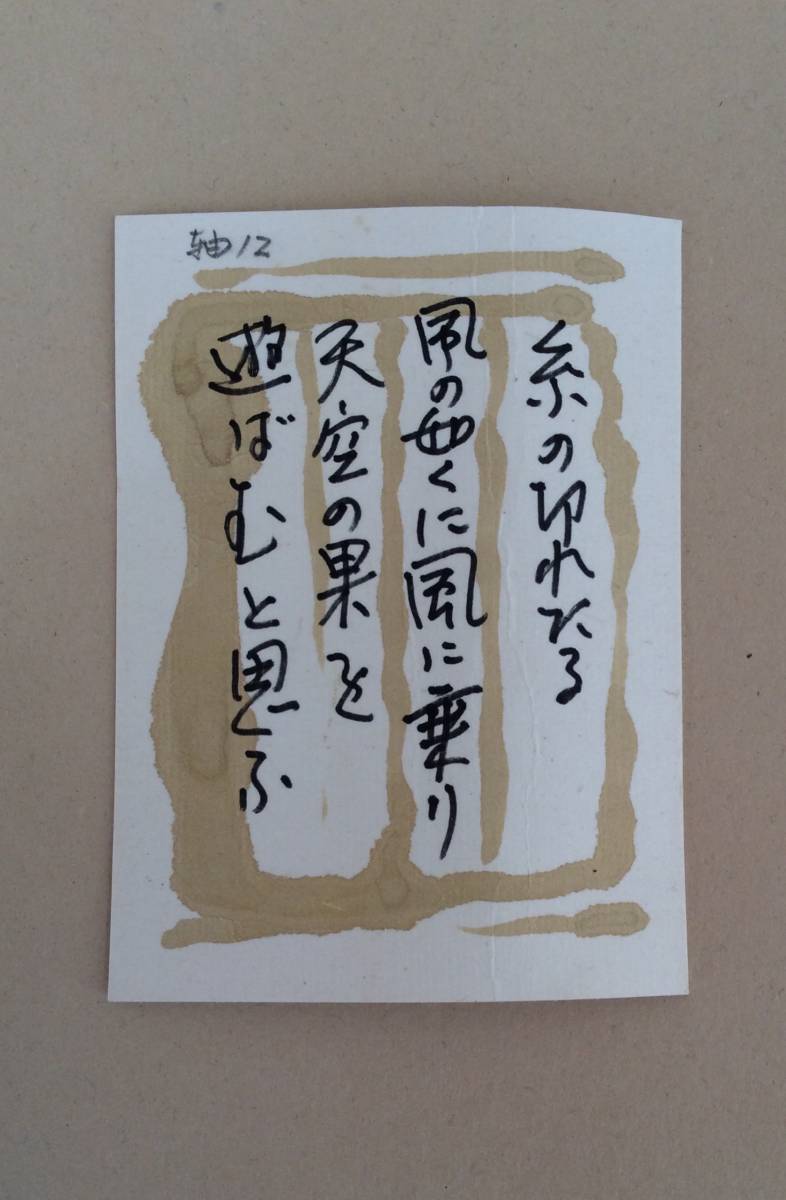 軸12
糸の切れたる
凧の如くに風に乗り
天空の果を
遊ばむと思ふ